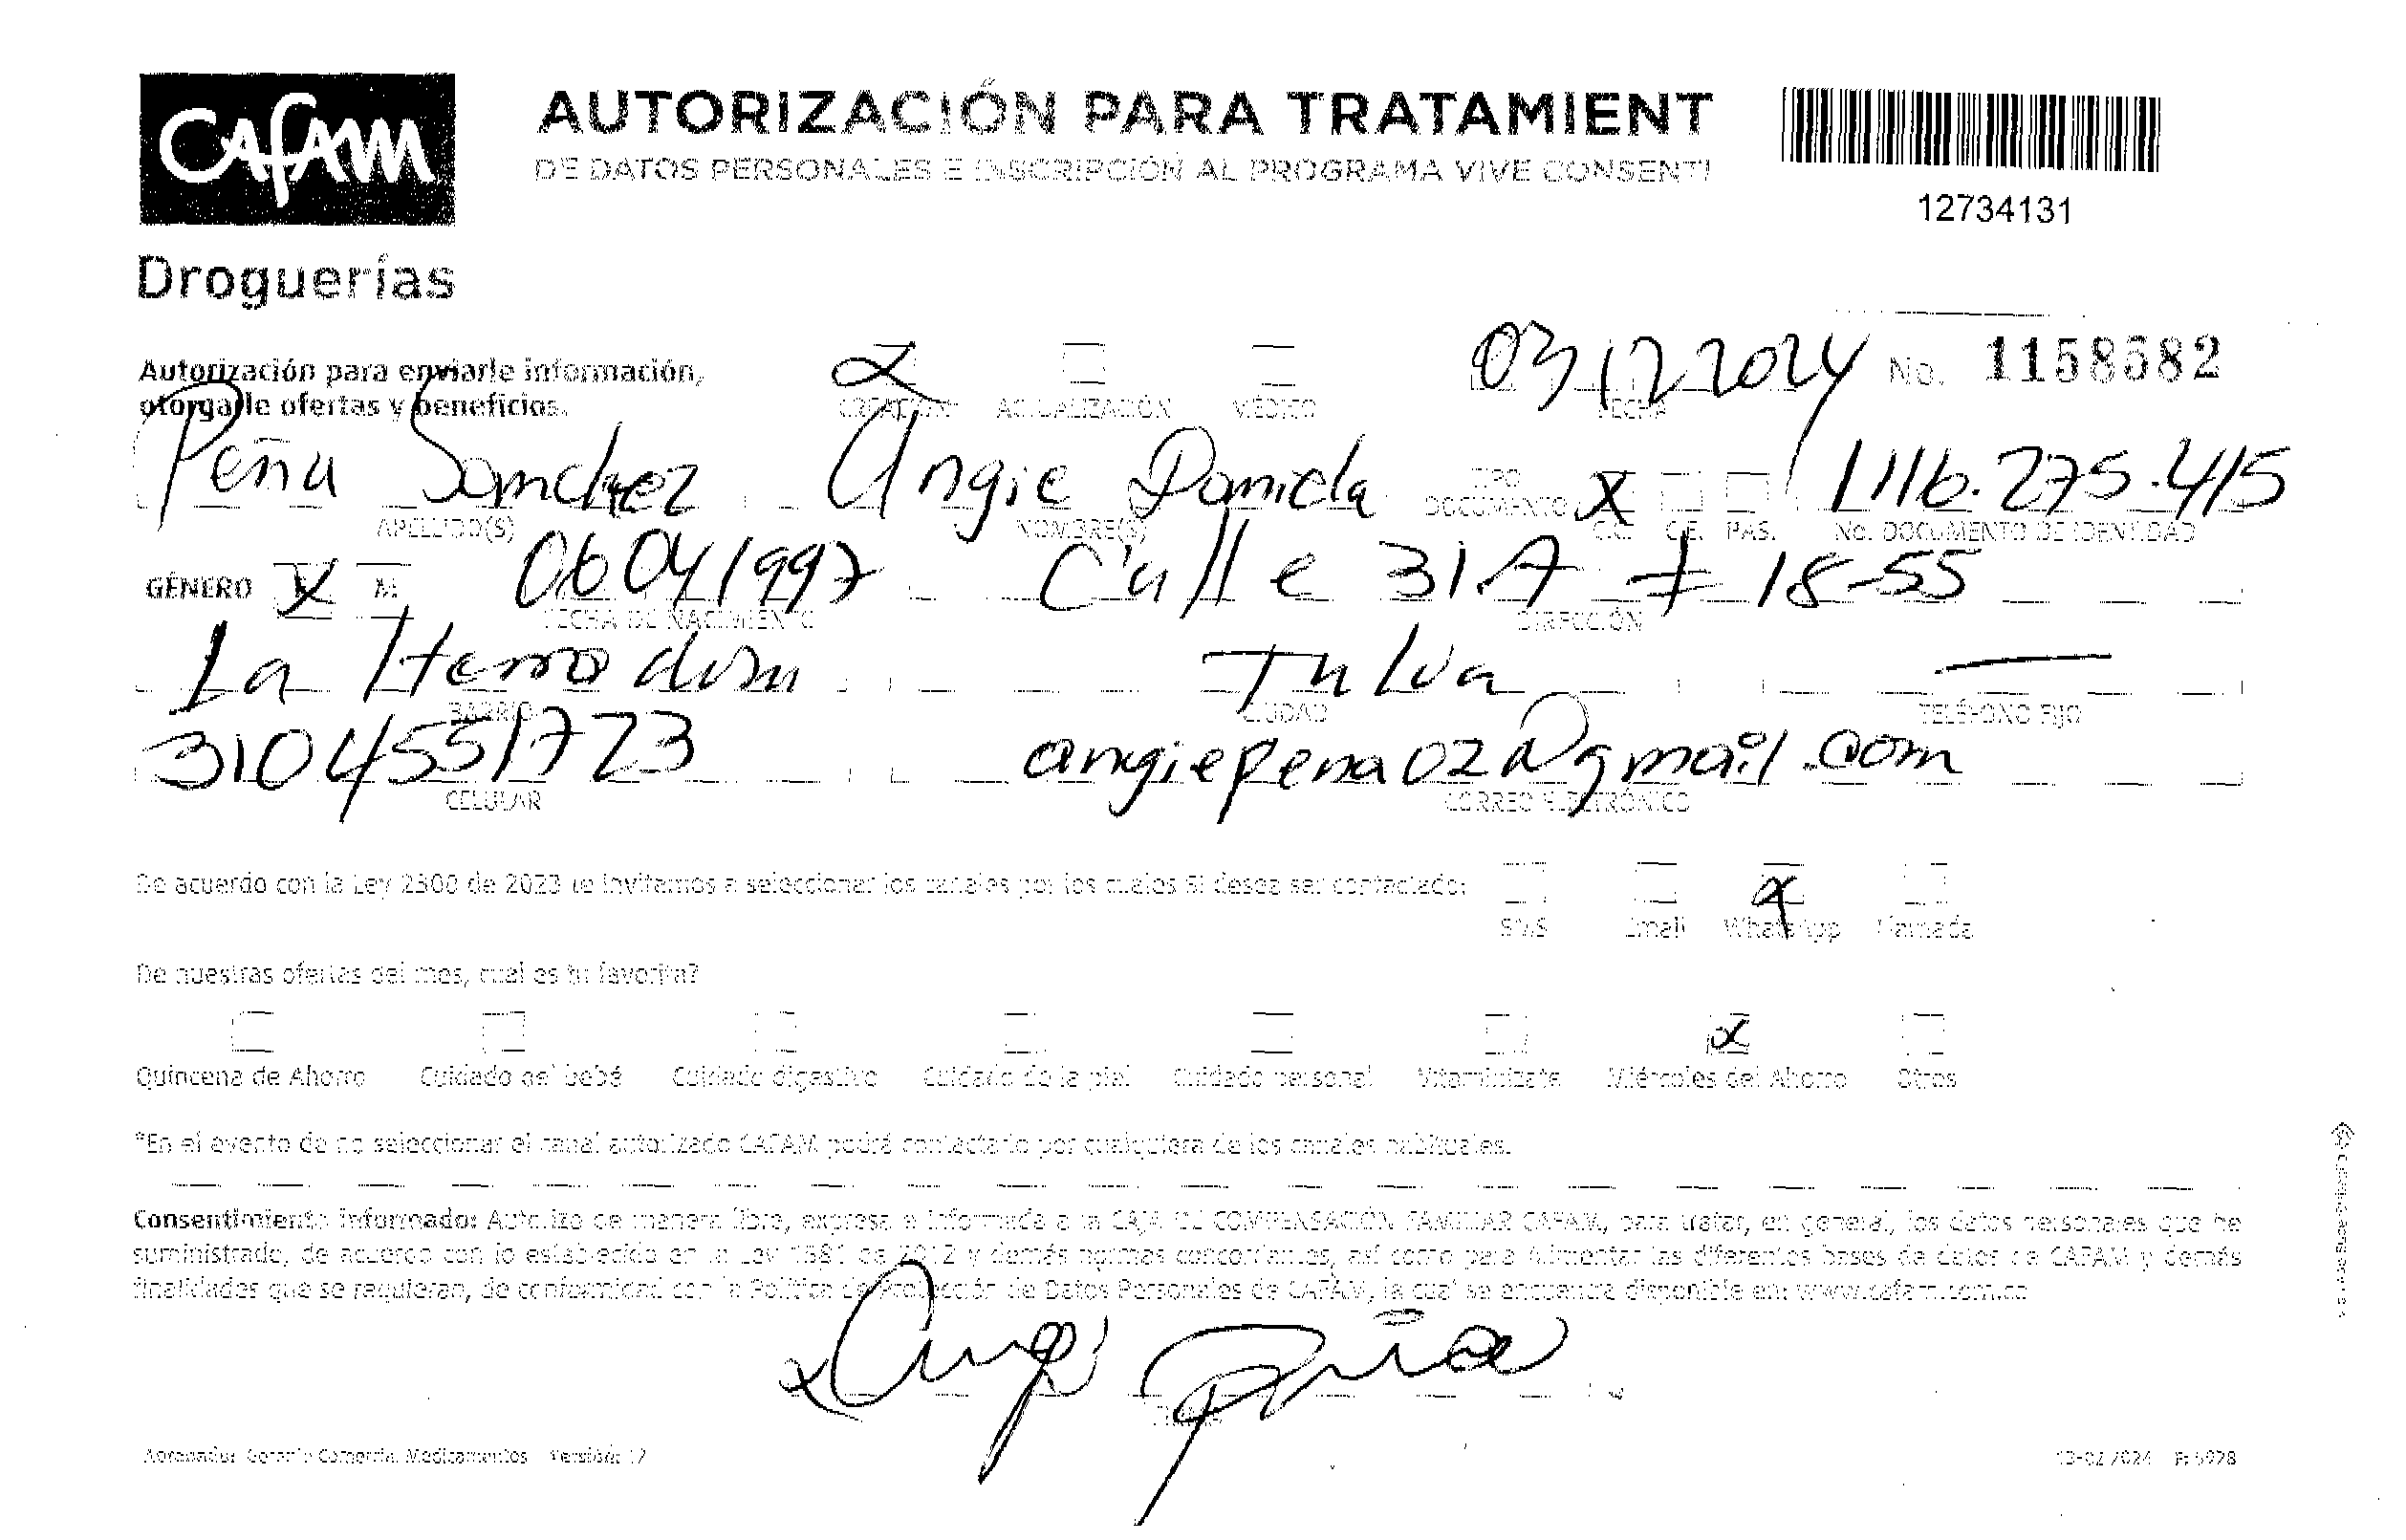 CAFAM
Droguerías
AUTORIZACIÓN PARA TRATAMIENT
DE DATOS PERSONALES E INSCRIPCIÓN AL PROGRAMA VIVE CONSENTI
12734131
Autorización para enviarle información,
otorgarle ofertas y beneficios.
X CREACIÓN ACTUALIZACIÓN MÉDICO
03/12 2024 No. 1158582
FECHA
Peña Sanchez Angie Daniela TIPO DOCUMENTO X 1116.275.415
APELLIDO(S) NOMBRE(S) C.C. C.E. PAS. No. DOCUMENTO DE IDENTIDAD
GÉNERO F X M 06041997 Calle 31A # 18-55
FECHA DE NACIMIENTO DIRECCIÓN
La Tulua —
BARRIO CIUDAD TELÉFONO FIJO
3104551723 angiepena02@gmail.com
CELULAR CORREO ELECTRÓNICO
De acuerdo con la Ley 2300 de 2023 te invitamos a seleccionar los canales por los cuales SI desea ser contactado:
X
SMS Email WhatsApp Llamada
De nuestras ofertas del mes, cual es tu favorita?
X
Quincena de Ahorro Cuidado del bebé Cuidado digestivo Cuidado de la piel Cuidado personal Vitaminízate Miércoles del Ahorro Otros
*En el evento de no seleccionar el canal autorizado CAFAM podrá contactarlo por cualquiera de los canales habituales.
Consentimiento informado: Autorizo de manera libre, expresa e informada a la CAJA DE COMPENSACIÓN FAMILIAR CAFAM, para tratar, en general, los datos personales que he
suministrado, de acuerdo con lo establecido en la Ley 1581 de 2012 y demás normas concordantes, así como para alimentar las diferentes bases de datos de CAFAM y demás
finalidades que se requieran, de conformidad con la Política de Protección de Datos Personales de CAFAM, la cual se encuentra disponible en: www.cafam.com.co
Firma
Aprobador Gerente Comercial Medicamentos Versión: 17
13-02 2024 F: 6978